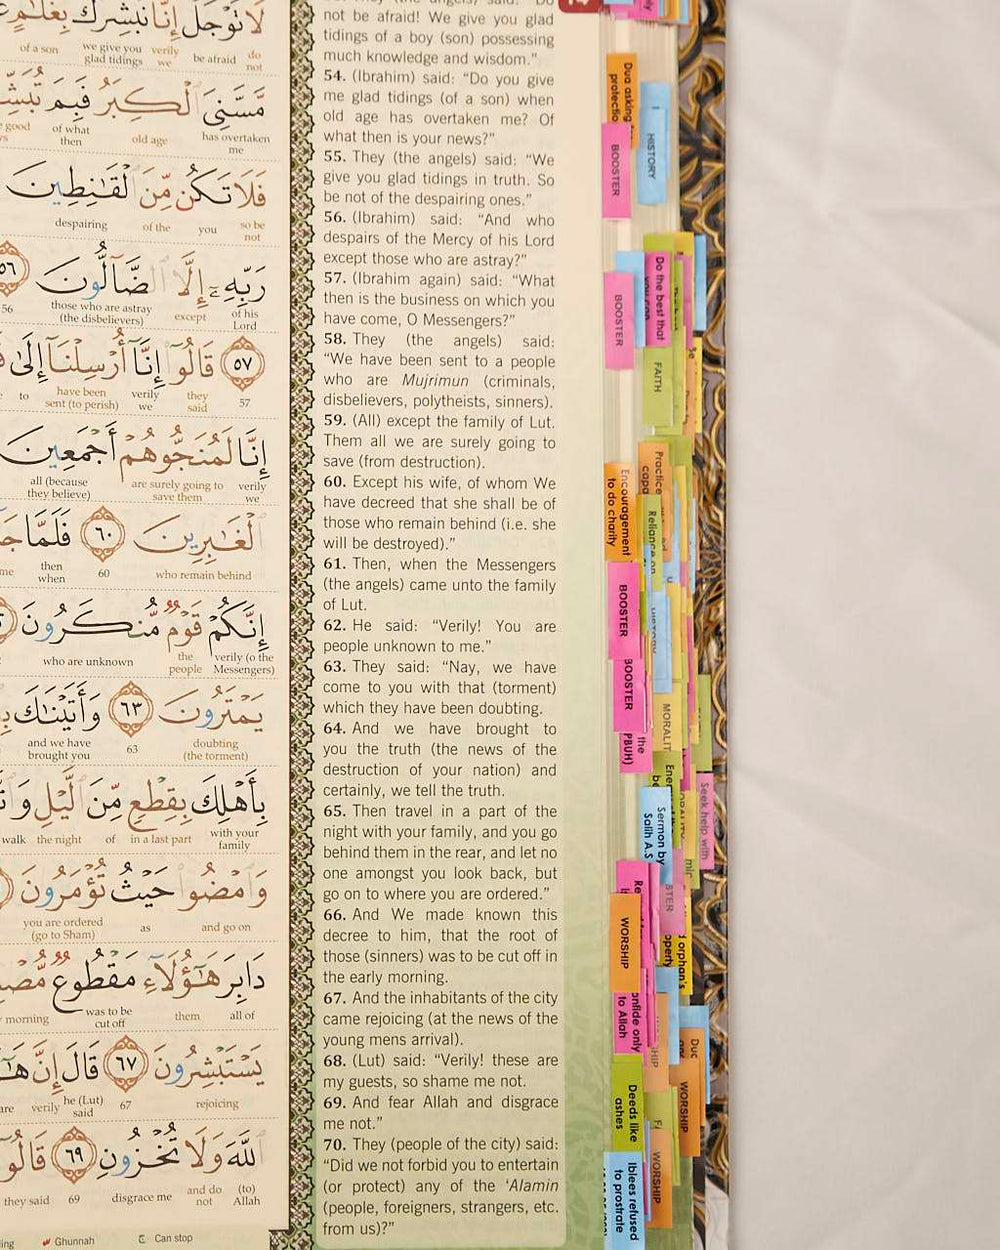 لَا تَوْجَلْ إِنَّا نُبَشِّرُكَ بِغُلَٰمٍ
of a son we give you glad tidings verily we be afraid do not
مَّسَّنِيَ الْكِبَرُ فَبِمَ
of what then old age has overtaken me
فَلَا تَكُن مِّنَ الْقَٰنِطِينَ
despairing of the you so be not
رَبِّهِۦٓ إِلَّا الضَّآلُّونَ ٥٦
56 those who are astray (the disbelievers) except of his Lord
٥٧ قَالُوٓا۟ إِنَّآ أُرْسِلْنَآ إِلَىٰ
to have been sent (to perish) verily we they said 57
إِنَّا لَمُنَجُّوهُمْ أَجْمَعِينَ
all (because they believe) are surely going to save them verily we
الْغَٰبِرِينَ ٦٠ فَلَمَّا
then when 60 who remain behind
إِنَّكُمْ قَوْمٌ مُّنكَرُونَ
who are unknown the people verily (o the Messengers)
يَمْتَرُونَ ٦٣ وَأَتَيْنَٰكَ
and we have brought you 63 doubting (the torment)
بِأَهْلِكَ بِقِطْعٍ مِّنَ الَّيْلِ
walk the night of in a last part with your family
وَامْضُوا۟ حَيْثُ تُؤْمَرُونَ
you are ordered (go to Sham) as and go on
دَابِرَ هَٰٓؤُلَآءِ مَقْطُوعٌ
morning was to be cut off them all of
يَسْتَبْشِرُونَ ٦٧ قَالَ إِنَّ
are verily he (Lut) said 67 rejoicing
اللَّهَ وَلَا تُخْزُونِ ٦٩
they said 69 disgrace me and do not (to) Allah
Ghunnah Can stop
not be afraid! We give you glad
tidings of a boy (son) possessing
much knowledge and wisdom."
54. (Ibrahim) said: "Do you give
me glad tidings (of a son) when
old age has overtaken me? Of
what then is your news?"
55. They (the angels) said: "We
give you glad tidings in truth. So
be not of the despairing ones."
56. (Ibrahim) said: "And who
despairs of the Mercy of his Lord
except those who are astray?"
57. (Ibrahim again) said: "What
then is the business on which you
have come, O Messengers?"
58. They (the angels) said:
"We have been sent to a people
who are Mujrimun (criminals,
disbelievers, polytheists, sinners).
59. (All) except the family of Lut.
Them all we are surely going to
save (from destruction).
60. Except his wife, of whom We
have decreed that she shall be of
those who remain behind (i.e. she
will be destroyed)."
61. Then, when the Messengers
(the angels) came unto the family
of Lut.
62. He said: "Verily! You are
people unknown to me."
63. They said: "Nay, we have
come to you with that (torment)
which they have been doubting.
64. And we have brought to
you the truth (the news of the
destruction of your nation) and
certainly, we tell the truth.
65. Then travel in a part of the
night with your family, and you go
behind them in the rear, and let no
one amongst you look back, but
go on to where you are ordered."
66. And We made known this
decree to him, that the root of
those (sinners) was to be cut off in
the early morning.
67. And the inhabitants of the city
came rejoicing (at the news of the
young mens arrival).
68. (Lut) said: "Verily! these are
my guests, so shame me not.
69. And fear Allah and disgrace
me not."
70. They (people of the city) said:
"Did we not forbid you to entertain
(or protect) any of the 'Alamin
(people, foreigners, strangers, etc.
from us)?"
Dua asking
BOOSTER
HISTORY
Do the best that
BOOSTER
FAITH
Practice
Encouragement
to do charity
Reliance on
BOOSTER
HISTORY
BOOSTER
MORALIT
the
PBUH)
Seek help with
Sermon by
Salih A.S
WORSHIP
orphan's
to Allah
Deeds like
ashes
WORSHIP
WORSHIP
Iblees refused
to prostrate